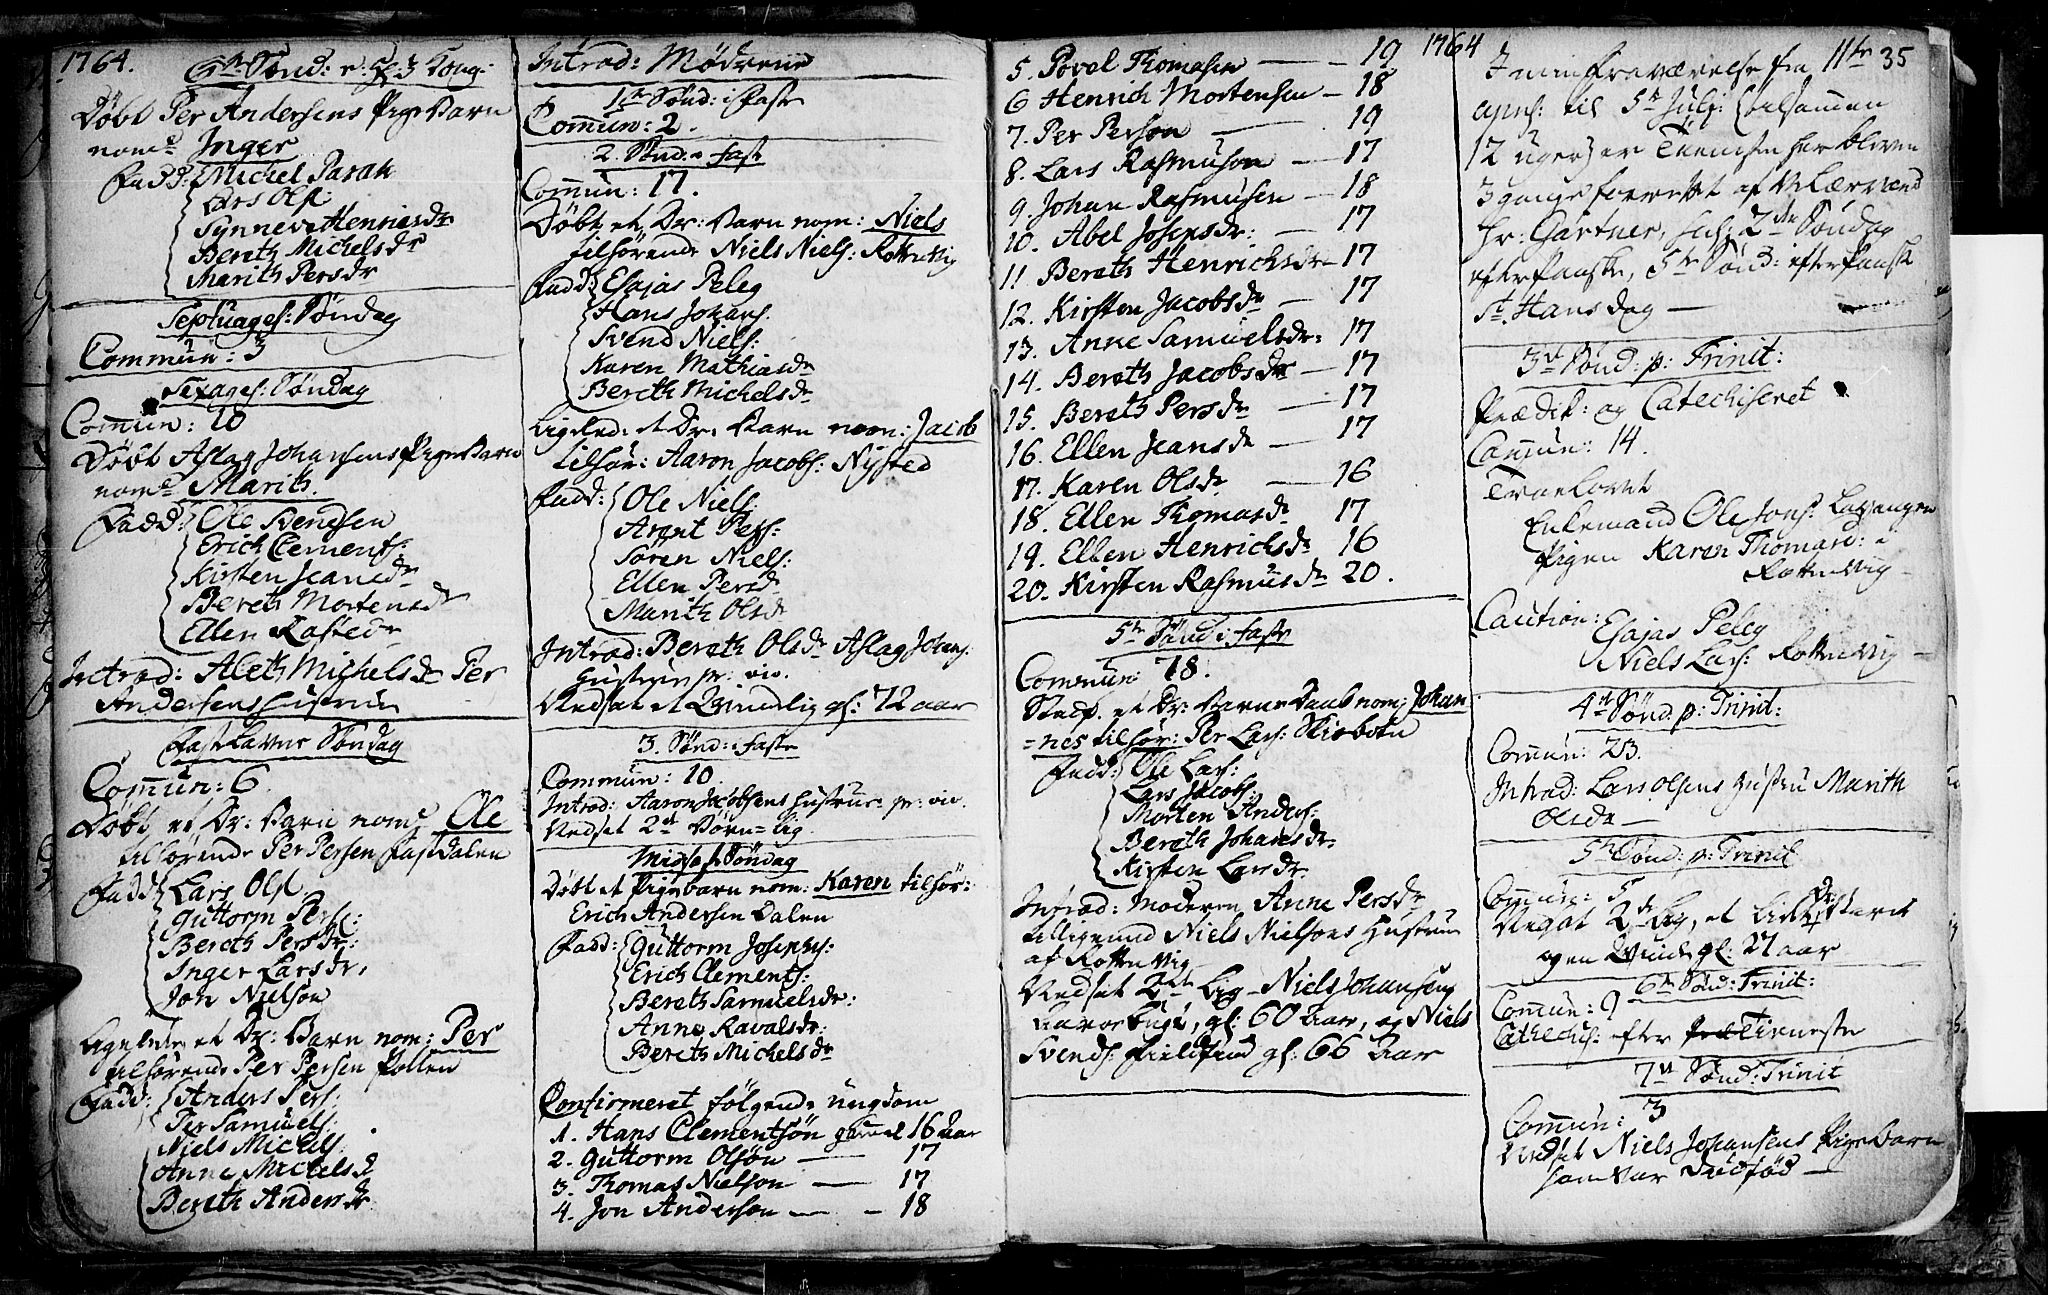 1764.
5te Sønd: e: H: 3 Kong:
Døbt Per Andersens PigeBarn
nome Inger
Fadd: Michel Parak
Lars Ols:
Synneve Henricsdr
Bereth Michelsdr
Marith Persdr
Septuages: Søndag
Commun: 3
Sexages: Søndag
Commun: 10
Døbt Aslag Johansens PigeBarn
nome Marith.
Fadd: Ole Svendsen
Erich Clements:
Kirsten Jeansdr
Bereth Mortensdr
Ellen Rastedr
Introd: Aleth Michelsdr Per
Andersens Hustrue
Fastelavns Søndag
Commun: 6
Døbt et Dr: Barn nome Ole
tilhørende Per Persen Fastdalen
Fadd: Lars Ols:
Guttorm Pers:
Bereth Persdr:
Inger Larsdr,
Jon Nielsøn
Ligeledes et Dr: Barn nom: Per
tilhørende Per Persen Pollen
Fadd: Anders Pers:
Per Samuels:
Niels Michels:
Anne Michelsd
Bereth Andersdr
Introd: Mødrene
1te Sønd: i Faste
Commun: 2.
2. Sønd: i Faste
Commun: 17.
Døbt et Dr: Barn nom: Niels
tilhørende Niels Niels: Rottenvig
Fadd: Esajas Peleg
Hans Johans:
Svend Niels:
Karen Mathiasdr
Bereth Michelsdr
Ligeled: et Dr: Barn nom: Jacob
tilhør: Aaron Jacobs: Nysted
Fadd: Ole Niels:
Arent Pers:
Søren Niels:
Ellen Persdr
Marith Olsdr
Introd: Bereth Olsdr Aslag Johans:
Hustrue pr: viv.
Nedsat et Qvindelig gl: 72 aar
3. Sønd: i Faste
Commun: 10.
Introd: Aaron Jacobsens Hustrue pr: viv.
Nedsat 2de Børn=Lig.
Midfaste Søndag
Døbt et Pigebarn nom: Karen tilhør:
Erich Andersen Dalen
Fadd: Guttorm Josephs:
Erich Clements:
Bereth Samuelsdr:
Anne Ravalsdr:
Bereth Michelsdr
Confirmeret følgende Ungdom
1. Hans Clementsøn gammel 16 Aar
2. Guttorm Olsøn — 17
3. Thomas Nielsøn — 17
4. Jon Andersøn — 18
1764
5. Povel Thomasen — 19
6 Henrich Mortensen — 18
7. Per Persøn — 19
8. Lars Rasmusøn — 17
9. Johan Rasmusen — 18
10. Abel Josepsdr: — 17
11 Bereth Henrichsdr — 17
12. Kirsten Jacobsdr — 17
13. Anne Samuelsdr: 17
14. Bereth Jacobsdr — 17
15. Bereth Persdr — 17
16. Ellen Jeansdr — 17
17. Karen Olsdr — 16
18. Ellen Thomasdr 17
19. Ellen Henrichsdr 16
20. Kirsten Rasmusdr 20.
5te Sønd: i Faste
Commun: 18.
Stadf. et Dr: Barns Daab nom: Johan
=nes tilhør: Per Lars: Skiobotn
Fadd: Ole Lars:
Lars Jacobs:
Morten Anders:
Bereth Johansdr.
Kirsten Larsdr.
Introd: Moderen Anne Persdr
tilligemed Niels Nielsøns Hustrue
af Rottenvig
Nedsat 2de Lig Niels Johansens
gl: 60 Aar, og Niels
Svends: gl: 66 Aar
35
I min Fraværelse fra 11te
April: til 5te Julj: (Tilsammen
12 Uger) er Tienesten her bleven
3 gange forrettet af Velærværd
Hr: Gartner, sch: 2den Søndag
efter Paaske, 5te Sønd: efter Paaske
St. Hans dag —
3de Sønd: p: Trinit:
Prædik: og Catechiseret
Commun: 14.
Troelovet
Enkemand Ole Jons: Lavangen
Pigen Karen Thomasd: i
Rottenvig
Caution:
Esajas Peleg
Niels Lars: Rottenvig —
4de Sønd: p: Trinit:
Commun: 23.
Introd: Lars Olsens Hustru Marith
Olsdr —
5te Sønd: p: Trinit
Commun: 5
Nedsat 2de Lig, et lidet Dr: Barn
og en Qvinde gl: 27 aar
6te Sønd: Trinit:
Commun: 9
Cathechis: efter Tieneste
7de Sønd: Trinit
Commun: 3
Nedsat Niels Johansens Pigebarn
som var Dødfød —